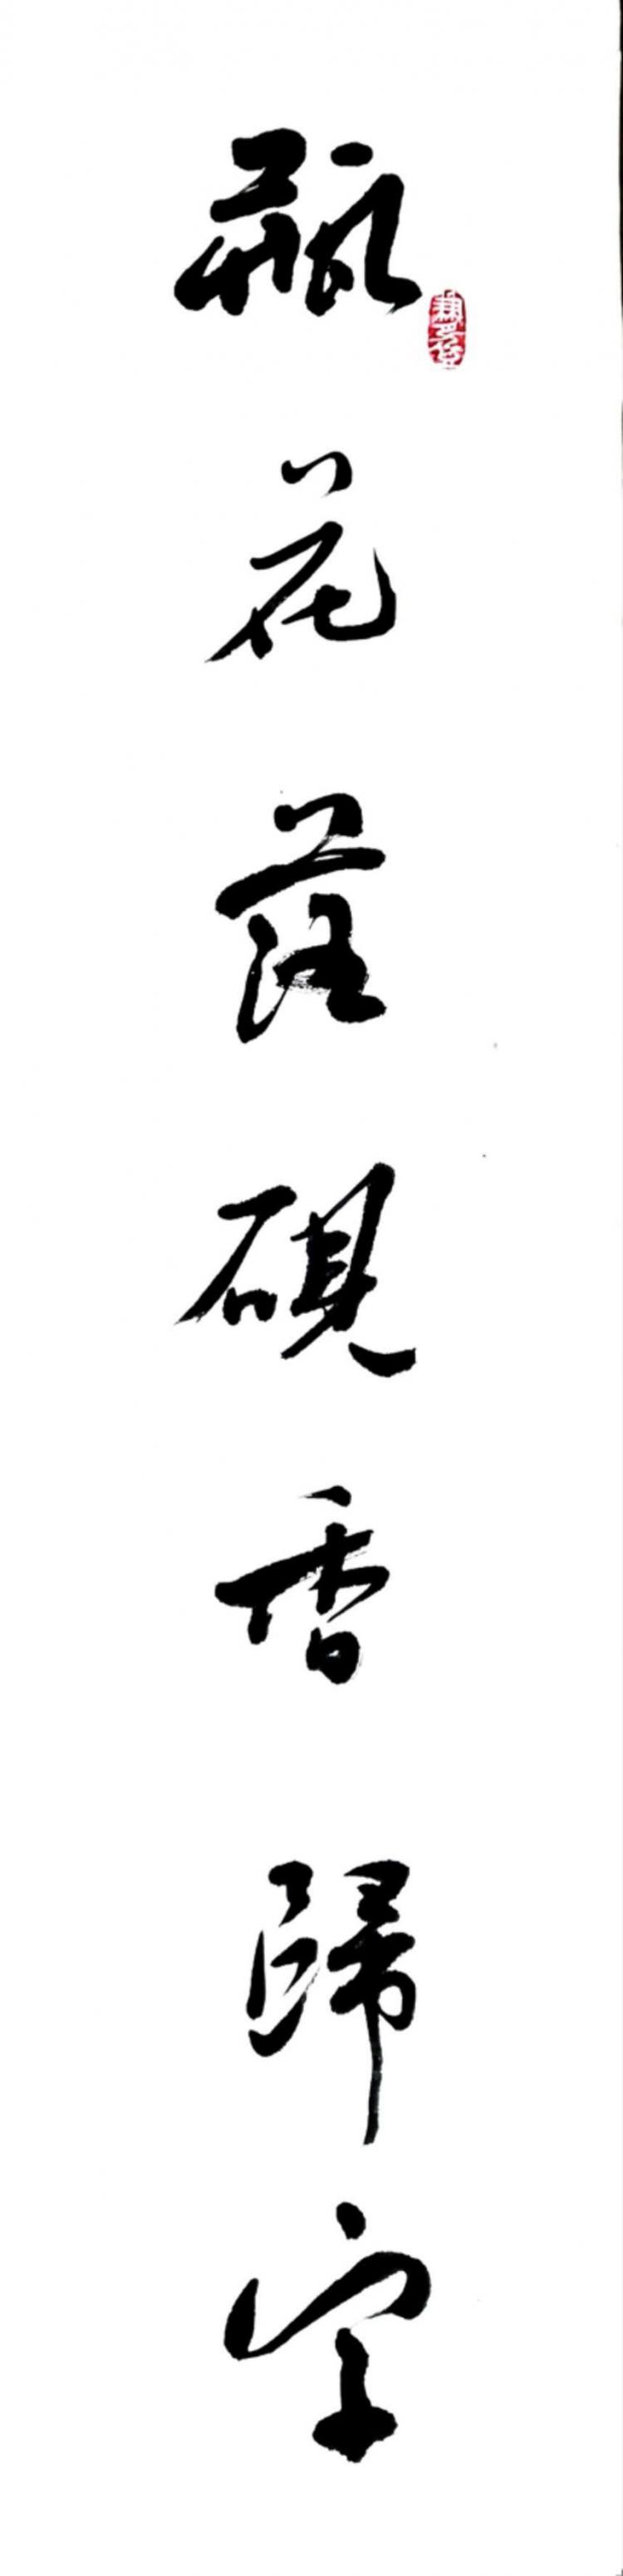 瓶花落硯香歸字